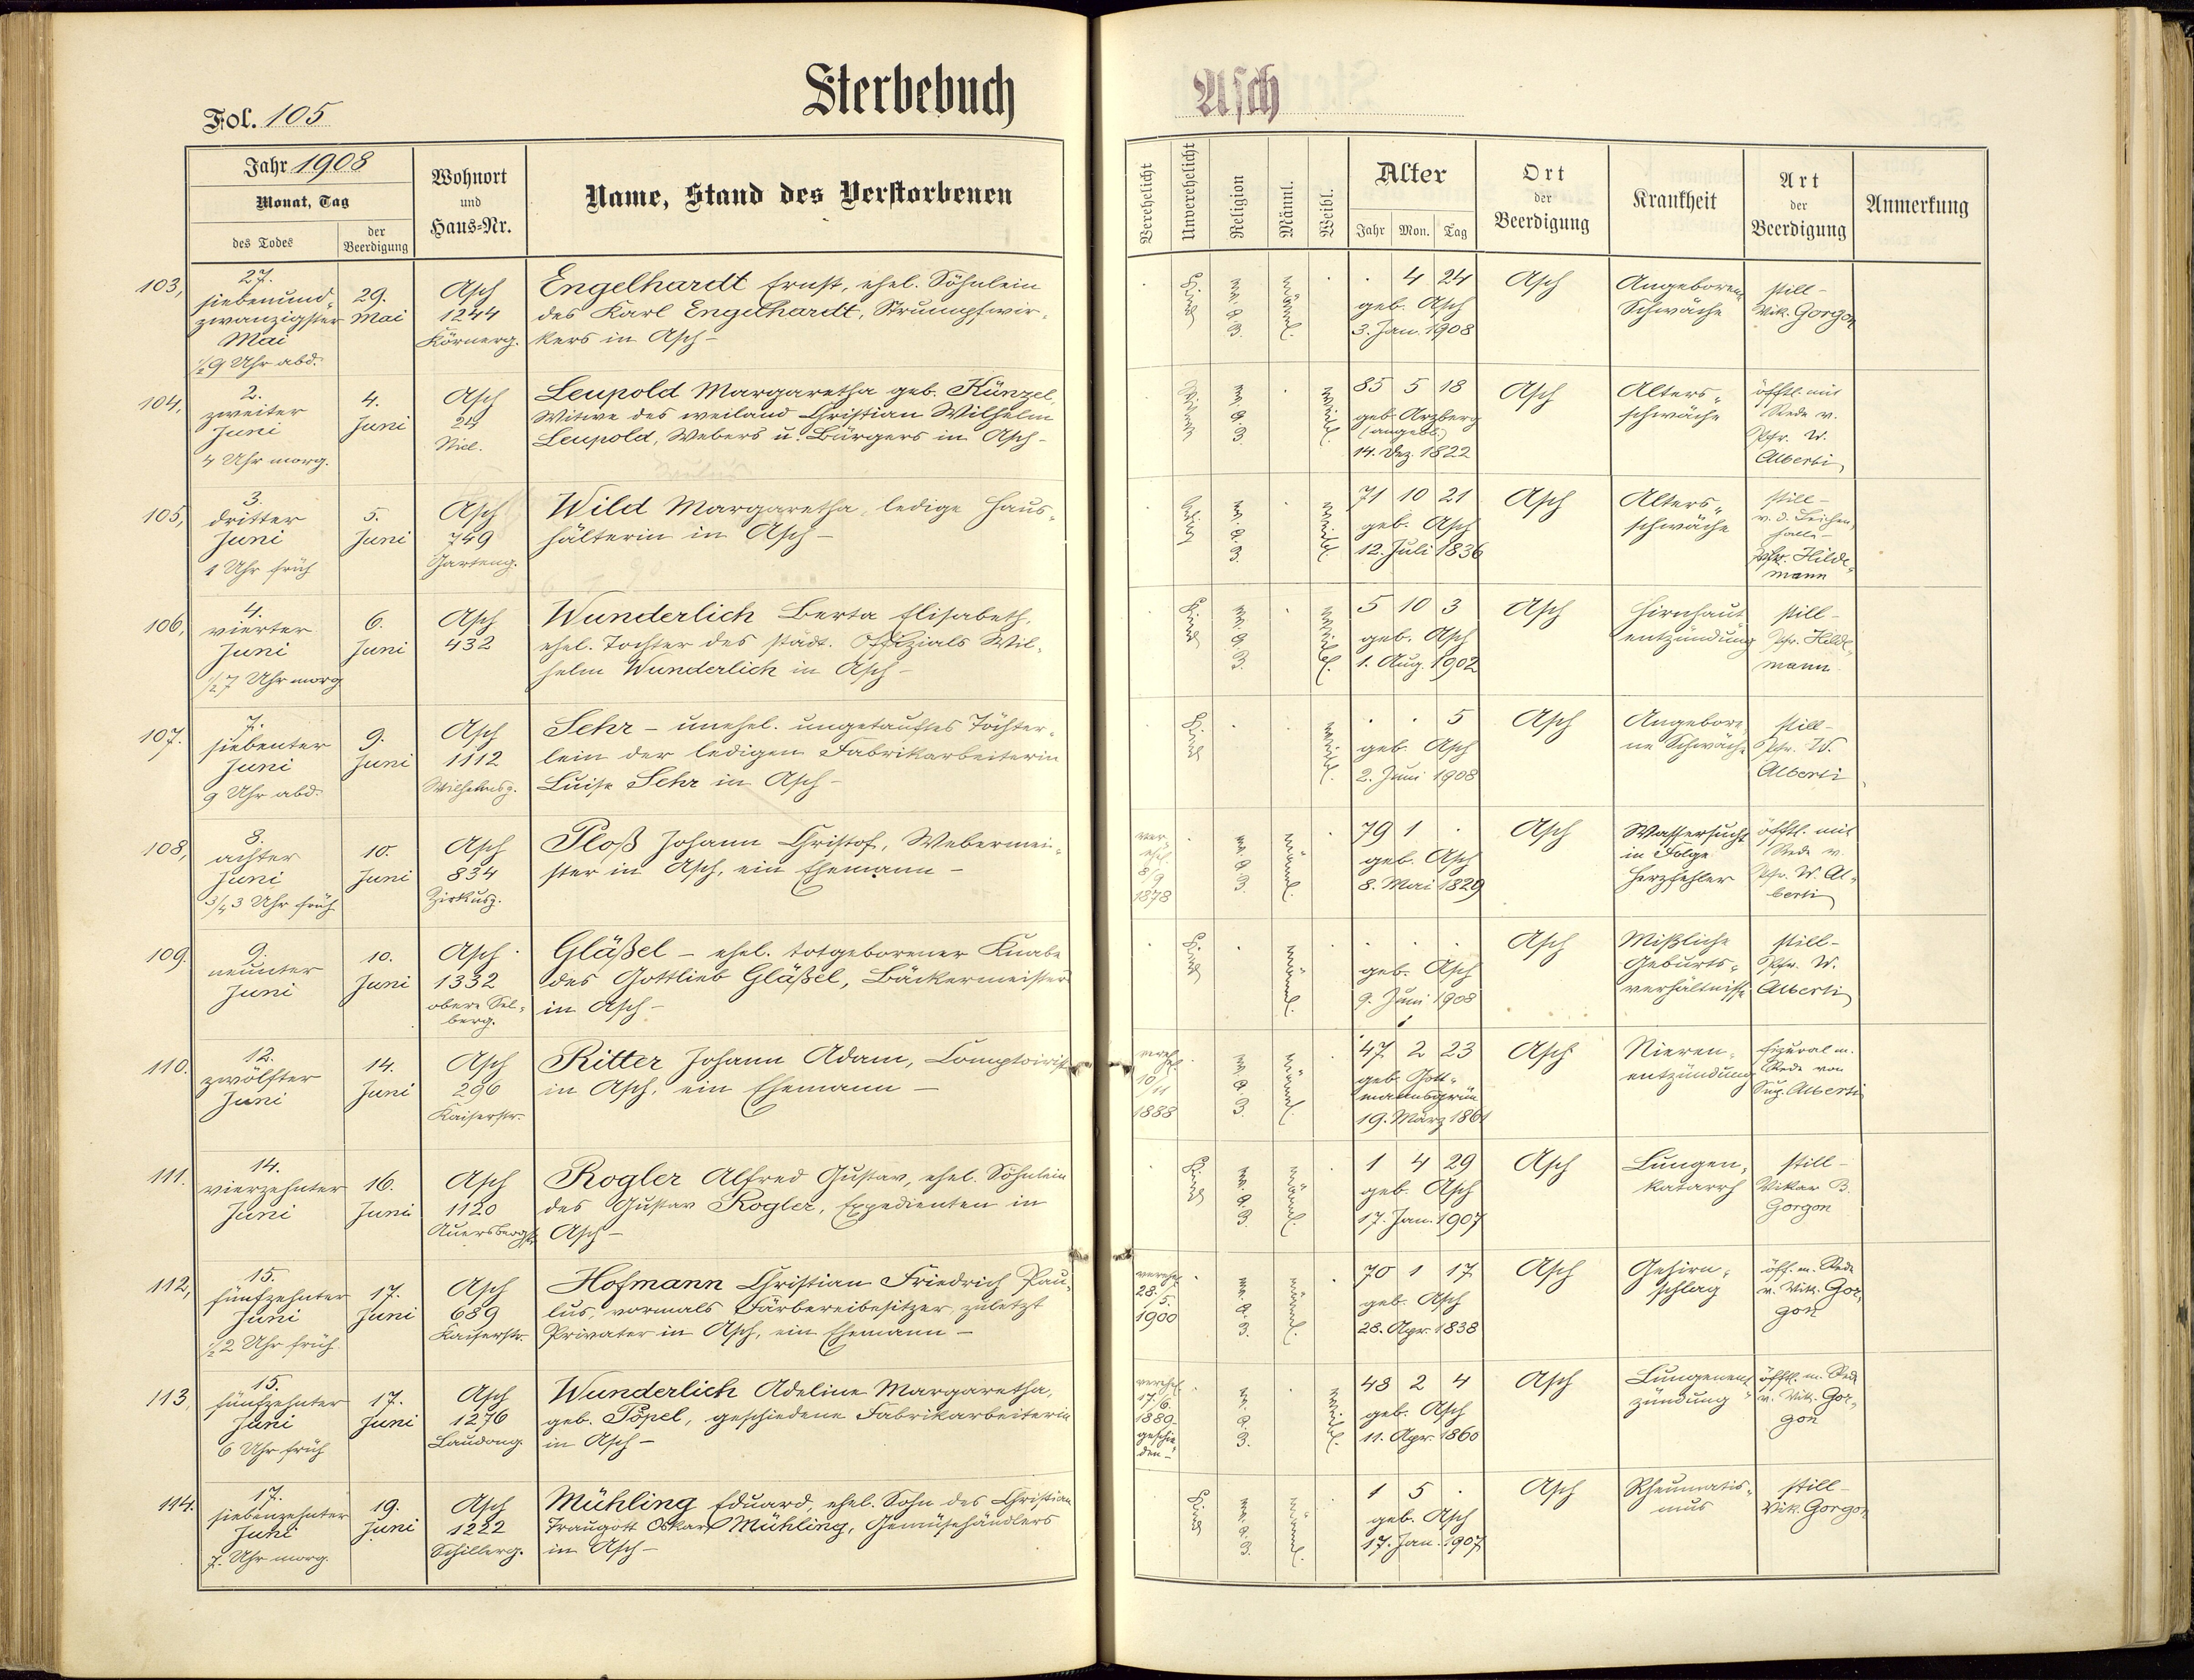 Sterbebuch
Asch
Fol. 105
Jahr 1908
Monat, Tag
des Todes
der Beerdigung
Wohnort
und
Haus=Nr.
Name, Stand des Verstorbenen
Verehelicht
Unverehelicht
Religion
Männl.
Weibl.
Alter
Jahr Mon. Tag
Ort
der
Beerdigung
Krankheit
Art
der
Beerdigung
Anmerkung
103,
27.
siebenund-
zwanzigster
Mai
1/2 9 Uhr abd.
29.
Mai
Asch
1244
Körnerg.
Engelhardt Ernst, ehel. Söhnlein
des Karl Engelhardt, Strumpfwir-
kers in Asch -
Kind
ev. A. B.
männl.
4 24
geb. Asch
3. Jan. 1908
Asch
Angeborene
Schwäche
still -
Vik. Gorgon
104,
2.
zweiter
Juni
4 Uhr morg.
4.
Juni
Asch
Leupold Margaretha geb. Künzel,
Witwe des weiland Christian Wilhelm
Leupold, Webers u. Bürgers in Asch -
Witwe
ev. A. B.
weibl.
85 5 18
geb. Arzberg
(angebl.)
14. Dez. 1822
Asch
Alters-
schwäche
öfftl. mit
Rede v.
Pfr. W.
Alberti
105,
3.
dritter
Juni
1 Uhr früh
5.
Juni
Asch
749
Garteng.
Wild Margaretha, ledige Haus-
hälterin in Asch -
ledig
ev. A. B.
weibl.
71 10 21
geb. Asch
12. Juli 1836
Asch
Alters-
schwäche
still -
v. d. Leichen-
halle -
Pfr. Hilde-
mann
106,
4.
vierter
Juni
1/2 7 Uhr morg
6.
Juni
Asch
432
Wunderlich Berta Elisabeth,
ehel. Tochter des städt. Offizials Wil-
helm Wunderlich in Asch -
Kind
ev. A. B.
weibl.
5 10 3
geb. Asch
1. Aug. 1902
Asch
Hirnhaut
entzündung
still -
Pfr. Hilde-
mann
107.
7.
siebenter
Juni
9 Uhr abd.
9.
Juni
Asch
1112
Wilhelmsg.
Sehr - unehel. ungetauftes Töchter-
lein der ledigen Fabrikarbeiterin
Luise Sehr in Asch -
Kind
weibl.
5
geb. Asch
2. Juni 1908
Asch
Angebore-
ne Schwäche
still -
Pfr. W.
Alberti
108,
8.
achter
Juni
3/4 3 Uhr früh
10.
Juni
Asch
834
Zirkusg.
Ploß Johann Christof, Webermei-
ster in Asch, ein Ehemann -
ver-
ehel.
8/9
1878
ev. A. B.
männl.
79 1
geb. Asch
8. Mai 1829
Asch
Wassersucht
in Folge
Herzfehler
öfftl. mit
Rede v.
Pfr. W. Al-
berti
109.
9.
neunter
Juni
10.
Juni
Asch
1332
obere Sel-
berg.
Gläßel - ehel. totgeborener Knabe
des Gottlieb Gläßel, Bäckermeisters
in Asch -
Kind
männl.
geb. Asch
9. Juni 1908
Asch
Mißliche
Geburts-
verhältnisse
still -
Pfr. W.
Alberti
110.
12.
zwölfter
Juni
14.
Juni
Asch
296
Kaiserstr.
Ritter Johann Adam, Comptoirist
in Asch, ein Ehemann -
verehel.
10/11
1888
ev. A. B.
männl.
47 2 23
geb. Gott-
mannsgrün
19. März 1861
Asch
Nieren-
entzündung
figural m.
Rede von
Sup. Alberti
111.
14.
vierzehnter
Juni
16.
Juni
Asch
1120
Auersbergstr.
Rogler Alfred Gustav, ehel. Söhnlein
des Gustav Rogler, Expedienten in
Asch -
Kind
ev. A. B.
männl.
1 4 29
geb. Asch
17. Jan. 1907
Asch
Lungen-
katarrh
still -
Vikar B.
Gorgon
112,
15.
fünfzehnter
Juni
1/2 2 Uhr früh
17.
Juni
Asch
689
Kaiserstr.
Hofmann Christian Friedrich Pau-
lus, vormals Färbereibesitzer, zuletzt
Privater in Asch, ein Ehemann -
verehel.
28./5.
1900
ev. A. B.
männl.
70 1 17
geb. Asch
28. Apr. 1838
Asch
Gehirn-
schlag
öff. m. Rede
v. Vik. Gor-
gon
113,
15.
fünfzehnter
Juni
6 Uhr früh
17.
Juni
Asch
1276
Laudong.
Wunderlich Adeline Margaretha,
geb. Pöpel, geschiedene Fabrikarbeiterin
in Asch -
verehel.
17./6.
1889
geschie-
den -
ev. A. B.
weibl.
48 2 4
geb. Asch
11. Apr. 1860
Asch
Lungenent-
zündung
öfftl. m. Rede
v. Vik. Gor-
gon
114.
17.
siebenzehnter
Juni
7. Uhr morg.
19.
Juni
Asch
1222
Schillerg.
Mühling Eduard, ehel. Sohn des Christian
Traugott Oskar Mühling, Gemüsehändlers
in Asch -
Kind
ev. A. B.
männl.
1 5
geb. Asch
17. Jan. 1907
Asch
Rheumatis-
mus
still -
Vik. Gorgon